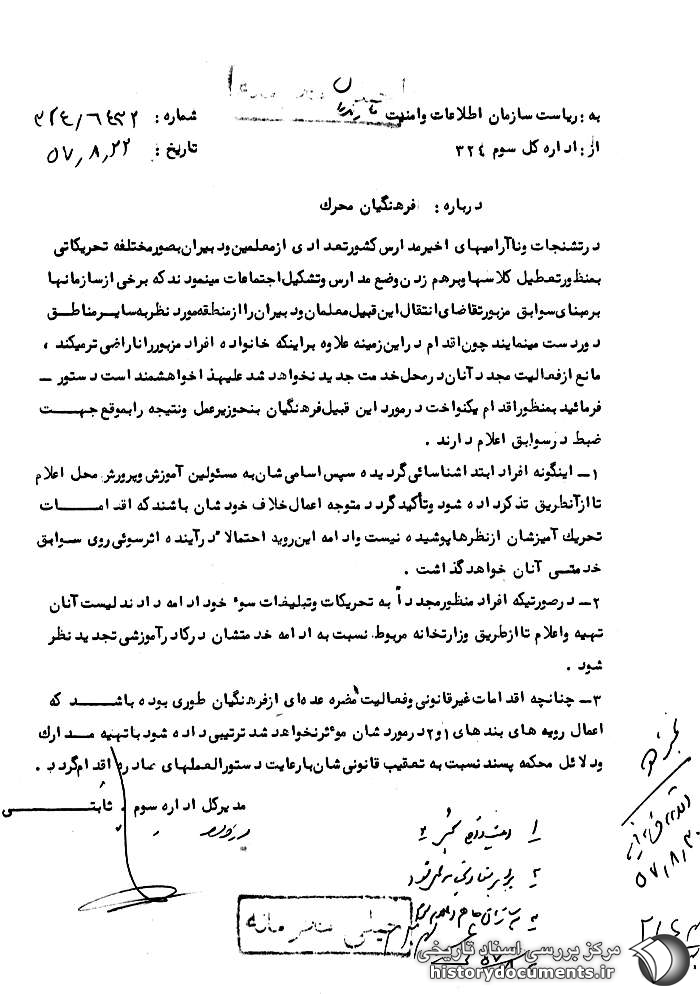 به : ریاست سازمان اطلاعات وامنیت
شماره : ۳۲۴/۶۴۳۲
از : اداره کل سوم ۳۲۴
تاریخ : ۵۷,۸,۲۲
درباره : فرهنگیان محرک
درتشنجات وناآرامیهای اخیرمدارس کشورتعدادی ازمعلمین ودبیران بصورمختلفه تحریکاتی
بمنظورتعطیل کلاسهاوبرهم زدن وضع مدارس وتشکیل اجتماعات مینمودندکه برخی ازسازمانها
برمبنای سوابق مزبورتقاضای انتقال این قبیل معلمان ودبیران راازمنطقه موردنظربه سایرمناطق
دوردست مینمایند چون اقدام دراین زمینه علاوه براینکه خانواده افراد مزبورراناراضی ترمیکند ،
مانع ازفعالیت مجددآنان درمحل خدمت جدیدنخواهدشد علیهذاخواهشمند است دستور ـ
فرمائید بمنظوراقدام یکنواخت درمورداین قبیل فرهنگیان بنحوزیرعمل ونتیجه رابموقع جهت
ضبط درسوابق اعلام دارند .
۱ـ اینگونه افراد ابتداشناسائی گردیده سپس اسامی شان به مسئولین آموزش وپرورش محل اعلام
تاازآنطریق تذکرداده شود وتأکیدگرددمتوجه اعمال خلاف خودشان باشندکه اقدامات
تحریک آمیزشان ازنظرهاپوشیده نیست وادامه این رویه احتمالا" درآینده اثرسوئی روی سوابق
خدمتی آنان خواهدگذاشت .
۲ـ درصورتیکه افراد منظورمجدداً به تحریکات وتبلیغات سوء خودادامه دادندلیست آنان
تهیه واعلام تاازطریق وزارتخانه مربوط نسبت به ادامه خدمتشان درکادرآموزشی تجدید نظر
شود .
۳ـ چنانچه اقدامات غیرقانونی وفعالیت مضره عده‌ای ازفرهنگیان طوری بوده باشد که
اعمال رویه های بندهای ۱و۲درموردشان موءثرنخواهدشدترتیبی داده شودباتهیه مدارک
ودلائل محکمه پسندنسبت به تعقیب قانونی شان بارعایت دستورالعملهای صادره اقدام گردد .
مدیرکل اداره سوم . ثابتی
۵۷,۸,۳۰
خیلی محرمانه
مرکز بررسی اسناد تاریخی
historydocuments.ir